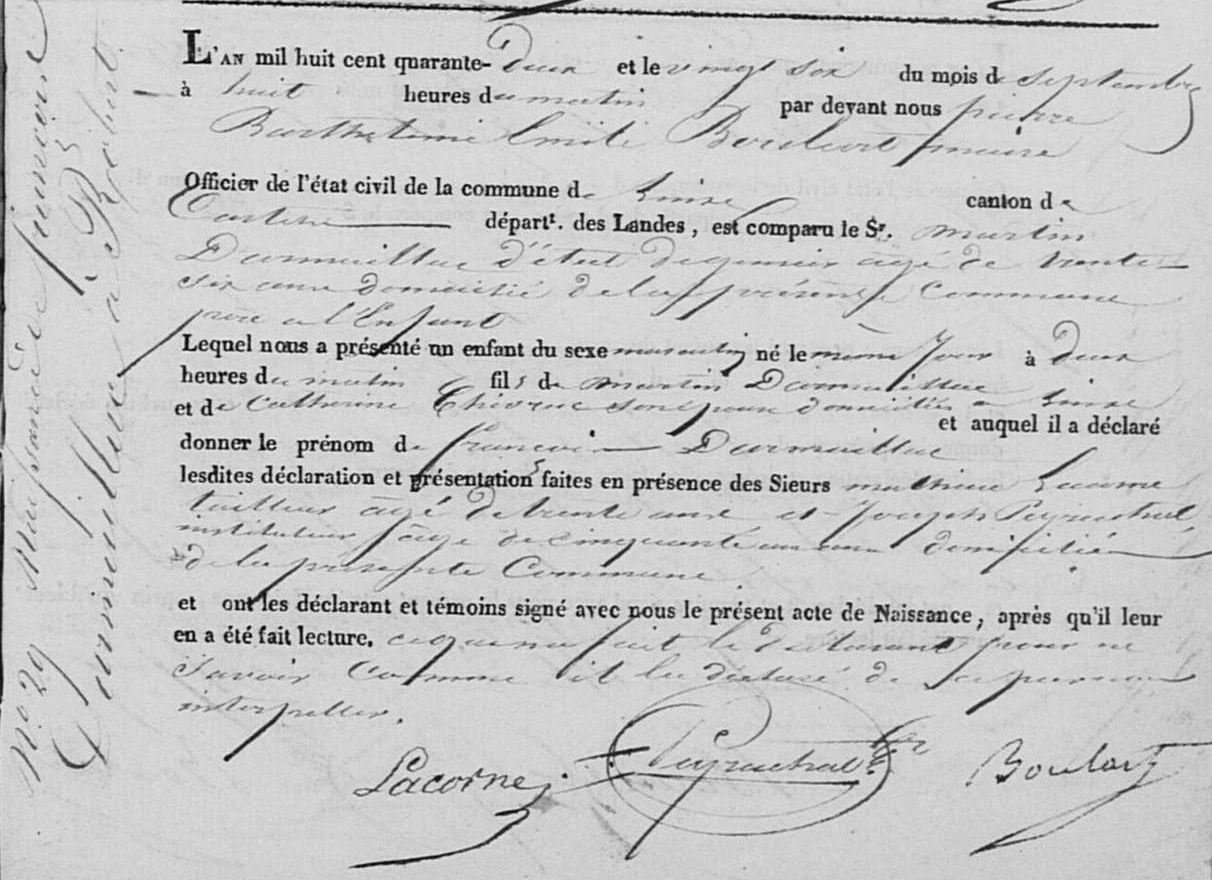 N.o 29 Naissance de francois
Darmaillac à Robert
L'AN mil huit cent quarante-Deux et le vingt six du mois de Septembre
à huit heures du matin par devant nous pierre
Barthelemi Emile Boulart maire
Officier de l'état civil de la commune de canton de
départt. des Landes, est comparu le Sr. martin
Darmaillac d'état de agé de trente
six ans domicilié de la présente Commune
père a l'Enfant
Lequel nous a présenté un enfant du sexe masculin né le même jour à Deux
heures du matin fils de martin Darmaillac
et de Catherine son épouse domiciliés a et auquel il a déclaré
donner le prénom de francois Darmaillac
lesdites déclaration et présentation faites en présence des Sieurs mathieu Lacorne
tailleur agé de trente ans et Joseph Peyruchat
instituteur agé de cinquante ans domiciliés
de la présente Commune
et ont les déclarant et témoins signé avec nous le présent acte de Naissance, après qu'il leur
en a été fait lecture. ce que na fait le déclarant pour ne
Savoir Comme il la déclaré de ce par nous
interpeller.
Lacorne Peyruchat Boulart